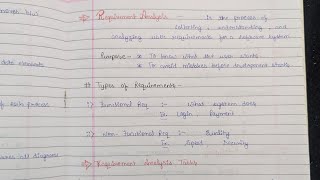 → Requirement Analysis :- Is the process of
collecting, understanding and
analyzing user requirements for a software system
Purpose - * To know what the user wants
* To avoid mistakes before development starts
# Types of Requirements -
1) Functional Req. :- What system does
Ex Login, Payment
2) Non-Functional Req :- Quality
Ex Speed Security
→ Requirement Analysis Tasks
data elements
of each process